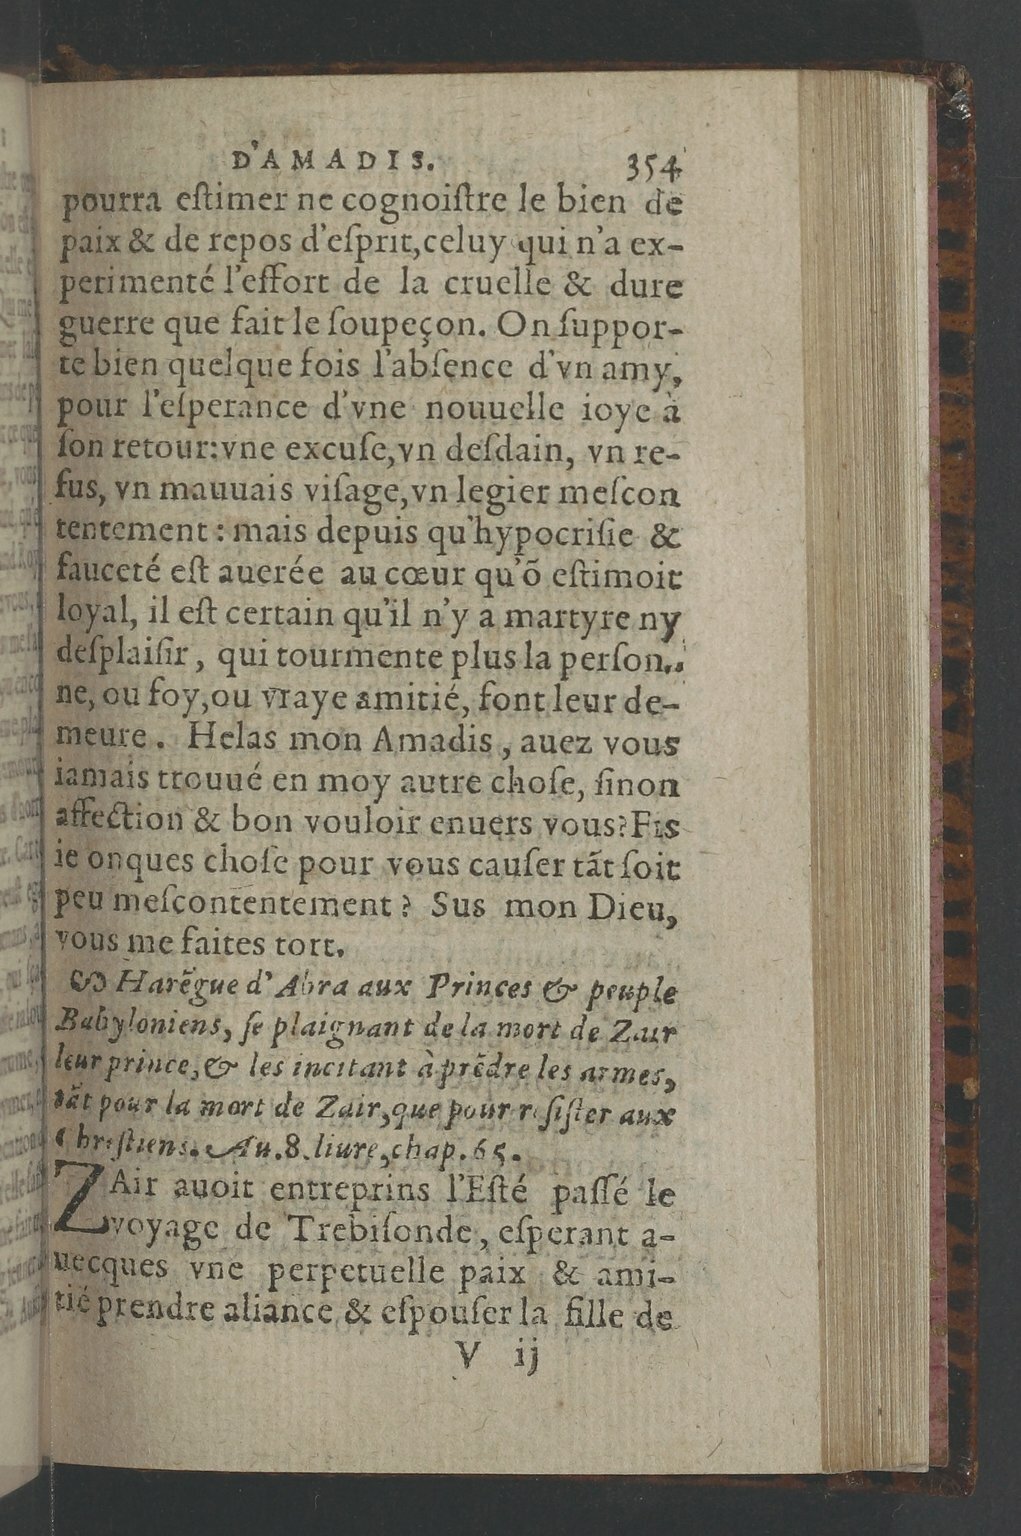 D'AMADIS. 354
pourra eſtimer ne cognoiſtre le bien de
paix & de repos d'eſprit, celuy qui n'a ex-
perimenté l'effort de la cruelle & dure
guerre que fait le ſoupeçon. On ſuppor-
te bien quelque fois l'abſence d'vn amy,
pour l'eſperance d'vne nouuelle ioye à
ſon retour: vne excuſe, vn deſdain, vn re-
fus, vn mauuais viſage, vn legier meſcon
tentement : mais depuis qu'hypocriſie &
fauceté eſt auerée au cœur qu'õ eſtimoit
loyal, il eſt certain qu'il n'y a martyre ny
deſplaiſir, qui tourmente plus la perſon-
ne, ou foy, ou vraye amitié, font leur de-
meure. Helas mon Amadis, auez vous
iamais trouué en moy autre choſe, ſinon
affection & bon vouloir enuers vous? Fis
ie onques choſe pour vous cauſer tãt ſoit
peu meſcontentement ? Sus mon Dieu,
vous me faites tort.
Harẽgue d'Abra aux Princes & peuple
Babyloniens, ſe plaignant de la mort de Zair
leur prince, & les incitant à prẽdre les armes,
tãt pour la mort de Zair, que pour reſiſter aux
Chreſtiens. Au. 8. liure, chap. 65.
ZAir auoit entreprins l'Eſté paſſé le
voyage de Trebiſonde, eſperant a-
uecques vne perpetuelle paix & ami-
tié prendre aliance & eſpouſer la fille de
V ij